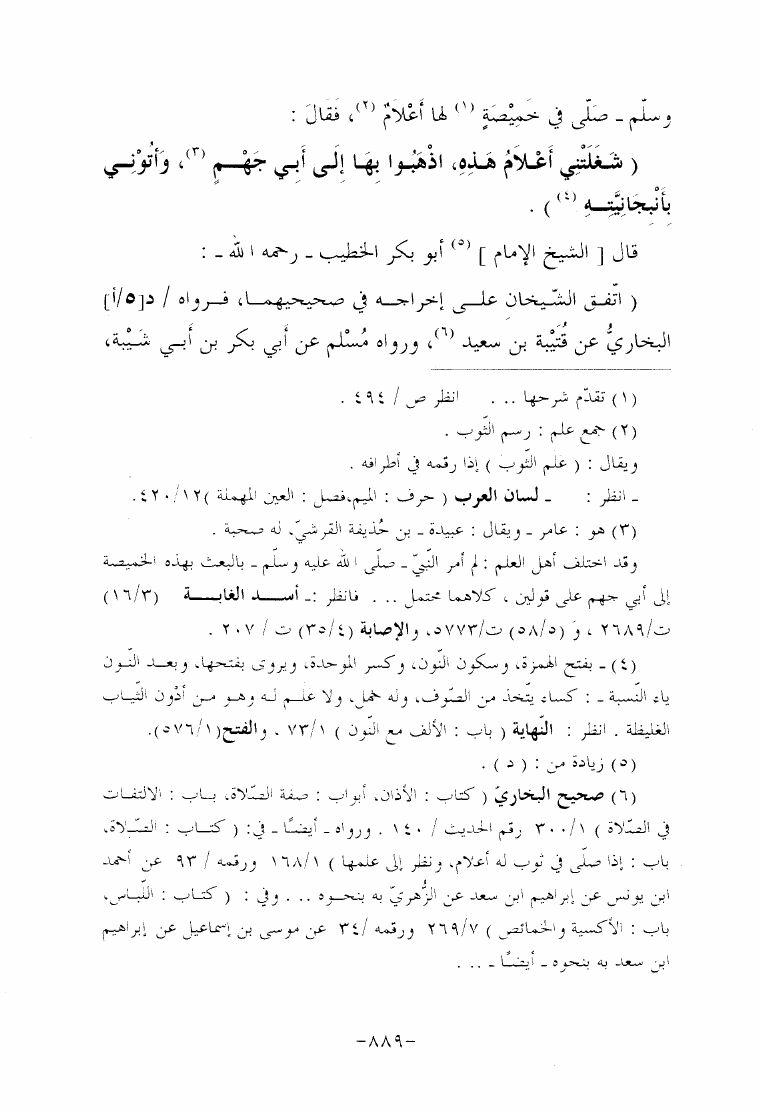 وسلّم ـ صَلَّى فِي خَمِيْصَةٍ (١) لها أَعْلَامٌ (٢)، فَقَالَ :
( شَغَلَتْنِي أَعْلَامُ هَذِهِ، اذْهَبُوا بِهَا إِلَى أَبِي جَهْمٍ (٣)، وَأْتُونِي
بِأَنْبِجَانِيَّتِهِ (٤) ) .
قال [ الشيخ الإمام ] (٥) أبو بكر الخطيب ـ رحمه الله ـ :
( اتّفق الشّيخان على إخراجه في صحيحيهما، فرواه / د[٥/أ]
البخاريُّ عن قُتَيْبة بن سعيد (٦)، ورواه مُسْلم عن أبي بكر بن أبي شَيْبة،
(١) تقدّم شرحها .. . انظر ص / ٤٩٤ .
(٢) جمع علم : رسم الثّوب .
ويقال : ( علم الثّوب ) إذا رقمه في أطرافه .
ـ انظر : ـ لسان العرب ( حرف : الميم،فصل : العين المهملة )٤٢٠/١٢.
(٣) هو : عامر ـ ويقال : عبيدة ـ بن حُذيفة القرشيّ، له صحبة .
وقد اختلف أهل العلم : لِمَ أمر النّبيّ ـ صلّى الله عليه وسلّم ـ بالبعث بهذه الخميصة
إلى أبي جهم على قولين ، كلاهما محتمل .. . فانظر :ـ أسد الغابة (١٦/٣)
ت/٢٦٨٩ ، و (٥٨/٥) ت/٥٧٧٣، والإصابة (٣٥/٤) ت / ٢٠٧ .
(٤) ـ بفتح الهمزة، وسكون النّون، وكسر الموحدة، ويروى بفتحها، وبعد النّون
ياء النّسبة ـ : كساء يتّخذ من الصّوف، وله خمل، ولا علم له وهو من أدْون الثّياب
الغليظة . انظر : النّهاية ( باب : الألف مع النّون ) ٧٣/١ ، والفتح(٥٧٦/١).
(٥) زيادة من : ( د ) .
(٦) صحيح البخاريّ ( كتاب : الأذان، أبواب : صفة الصّلاة، باب : الالتفات
في الصّلاة ) ٣٠٠/١ رقم الحديث / ١٤٠ . ورواه ـ أيضًا ـ في: ( كتاب : الصّلاة،
باب : إذا صلّى في ثوب له أعلام، ونظر إلى علمها ) ١٦٨/١ ورقمه / ٩٣ عن أحمد
ابن يونس عن إبراهيم ابن سعد عن الزُّهريّ به بنحوه .. . وفي : ( كتاب : اللّباس،
باب : الأكسية والخمائص ) ٢٦٩/٧ ورقمه /٣٤ عن موسى بن إسماعيل عن إبراهيم
ابن سعد به بنحوه ـ أيضًا ـ .. .
-٨٨٩-